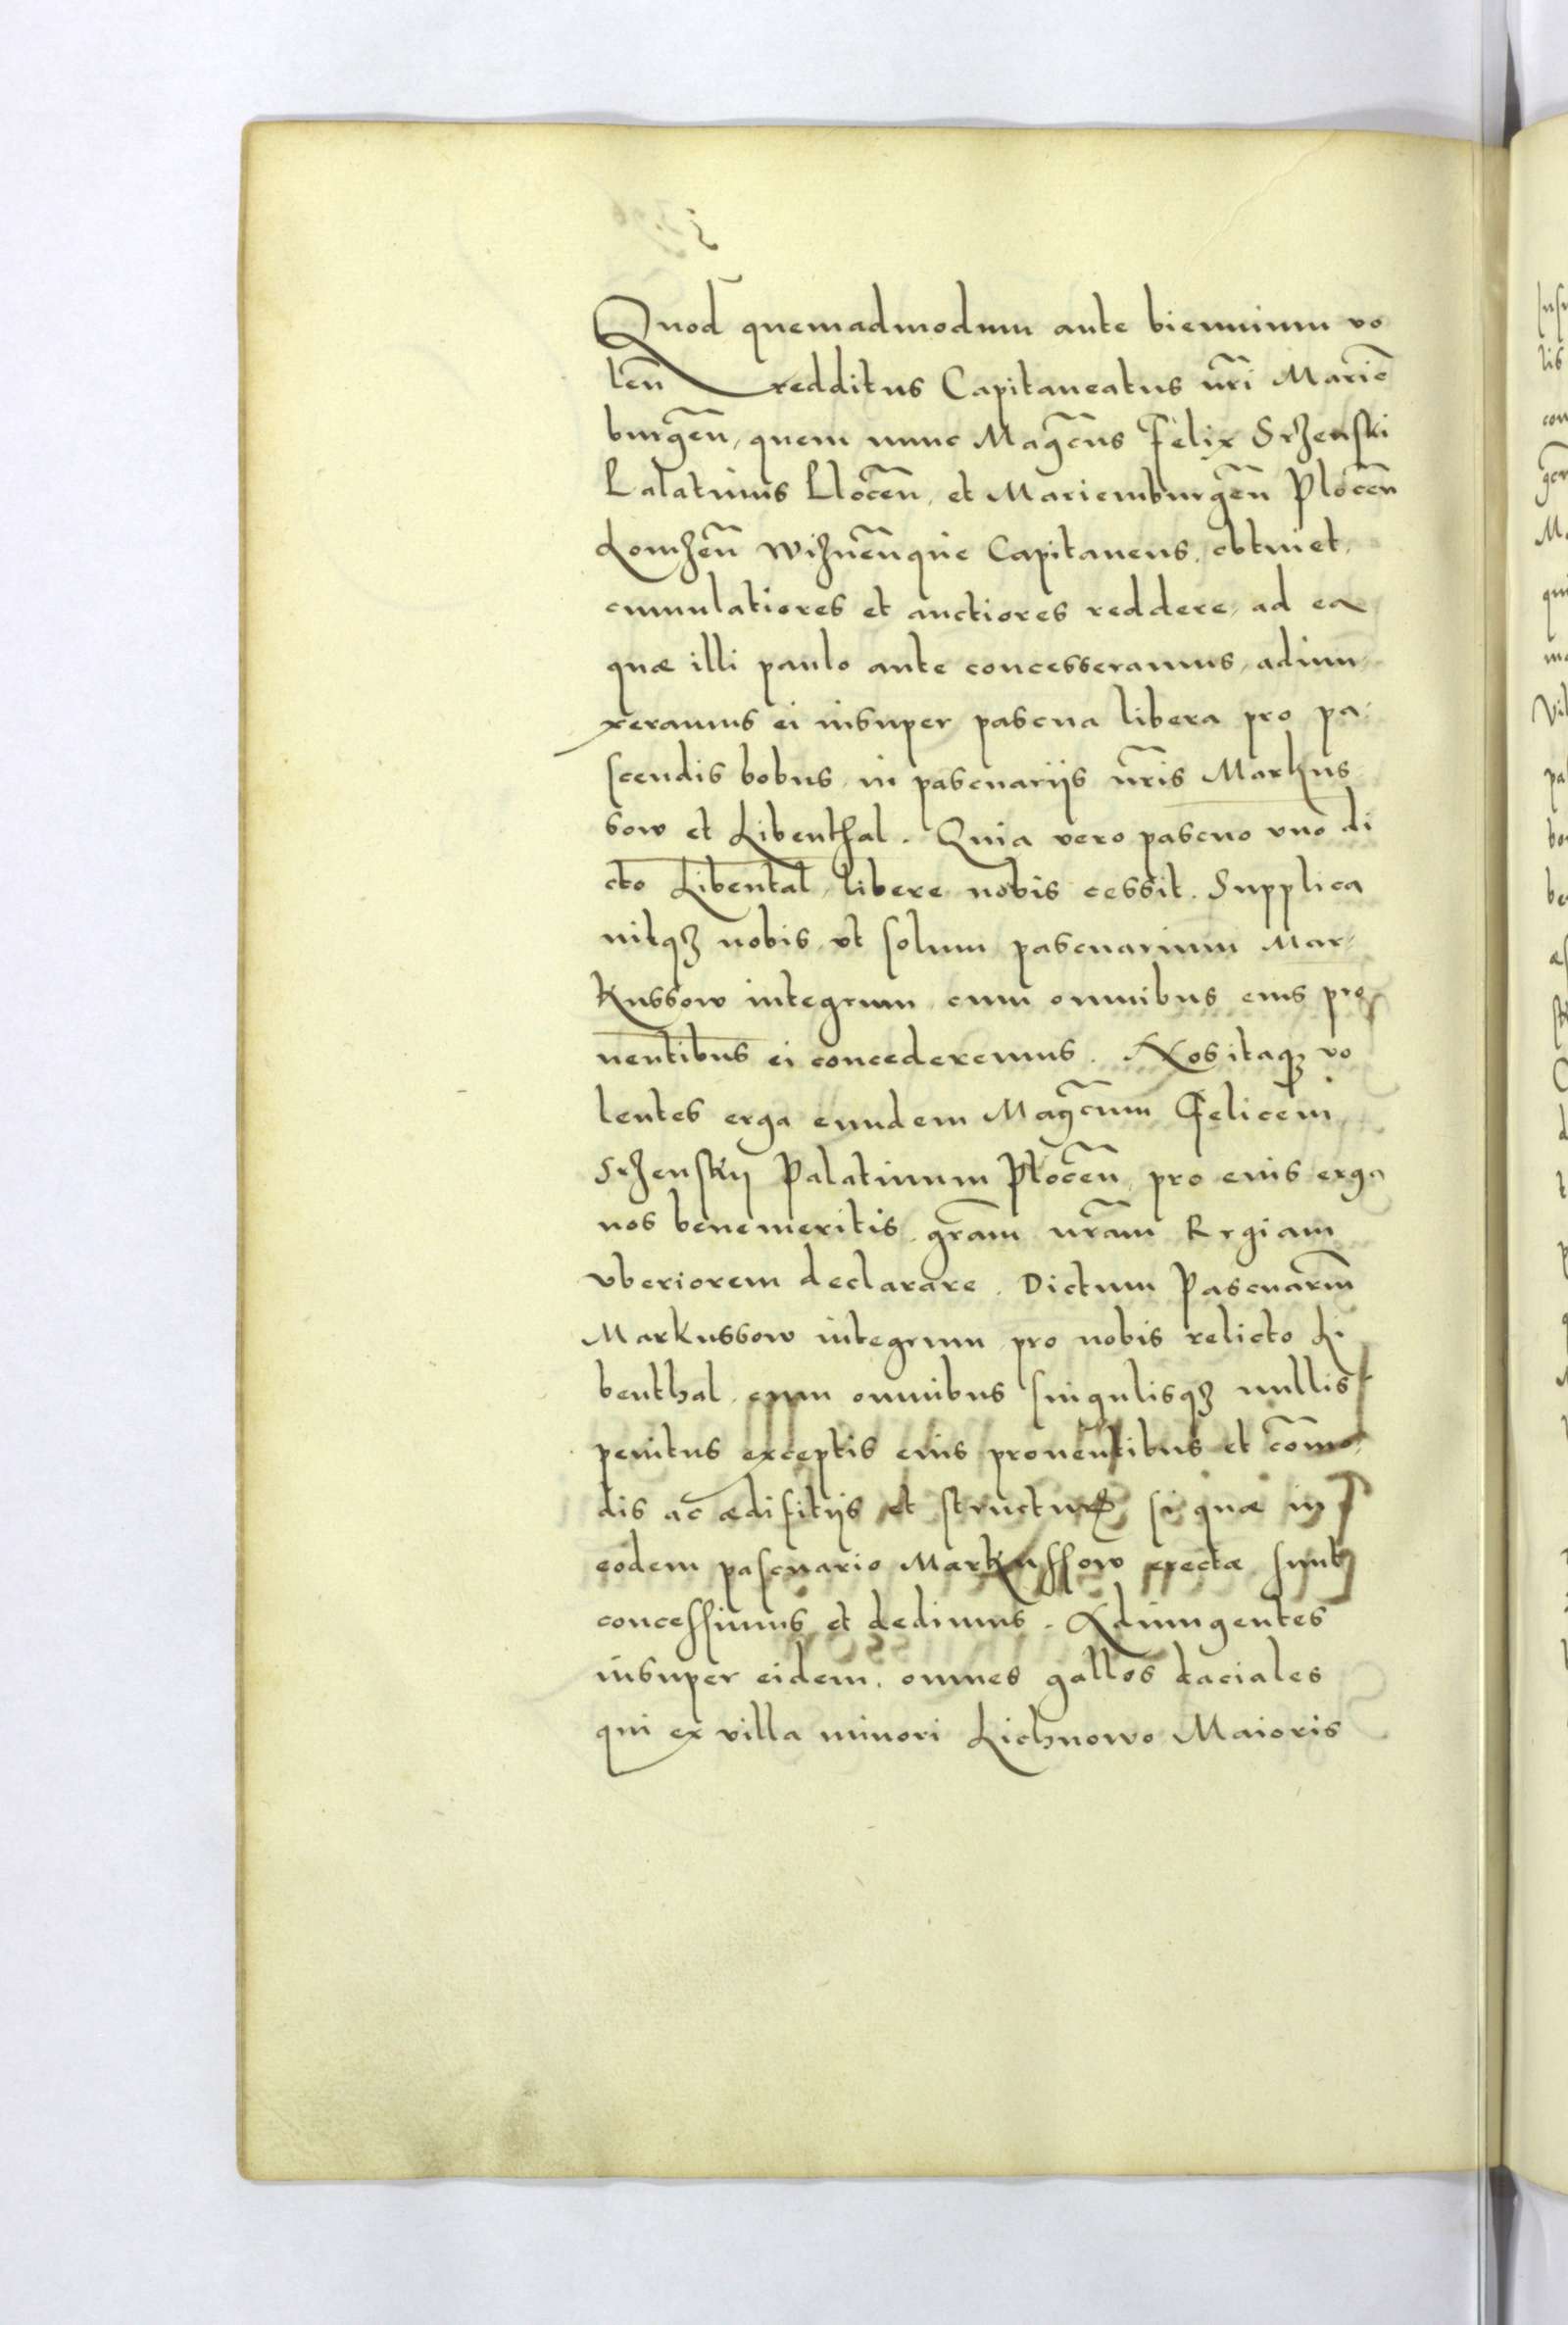 Quod quemadmodum ante biennium vo
len̄ redditus Capitaneatus nr̄i Marie͂
burgen̄, quem nunc Mag͂cus Felix Srzenski
Palatinus Plocen̄, et Mariemburgen̄ Plocen̄
Lomzen̄ Wiznen̄que Capitaneus, obtinet,
cumulatiores et auctiores reddere, ad ea
quæ illi paulo ante concesseramus, adiun
xeramus ei insuper pascua libera pro pa
scendis bobus, in pascuariis nr̄is Markus
sow et Libenthal. Quia vero pascuo vno di
cto Libental, libere nobis cessit. Supplica
uitqꝫ nobis vt solum pascuarium Mar
kussow integrum cum omnibus eius pro
uentibus ei concederemus. Nos itaqꝫ vo
lentes erga eundem Mag͂cum Felicem
Srzenskij Palatinum Plocen̄, pro eius erga
nos benemeritis, gr̄am nr̄am Regiam
vberiorem declarare. Dictum Pascuariu͂
Markussow integrum, pro nobis relicto Li
benthal, cum omnibus singulisqꝫ nullis
penitus exceptis eius prouentibus et co͂mo
dis ac ædifitijs et structuris, si quæ in
eodem pascuario Markussow erectæ sunt
concessimus et dedimus. Adiungentes
insuper eidem, omnes gallos daciales
qui ex villa minori Lichnowo Maioris